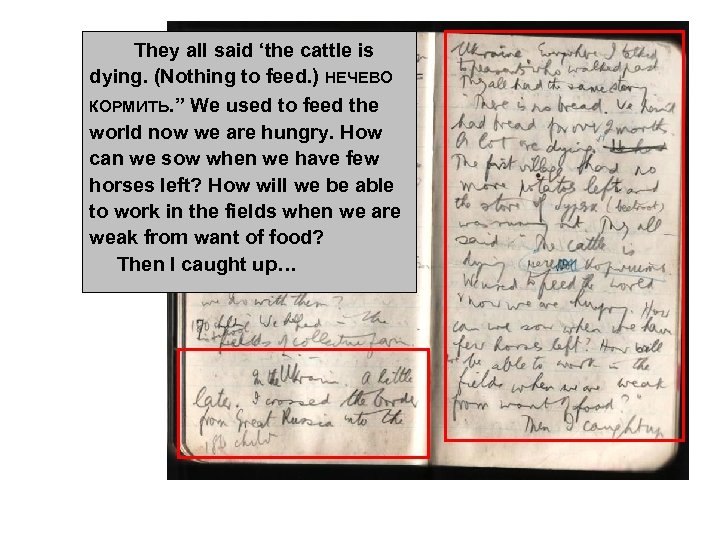 They all said ‘the cattle is
dying. (Nothing to feed.) НЕЧЕВО
КОРМИТЬ.” We used to feed the
world now we are hungry. How
can we sow when we have few
horses left? How will we be able
to work in the fields when we are
weak from want of food?
Then I caught up…
we do with them?
We helped – the
fields of collective farm.
In the Ukraine. A little
later. I crossed the border
from Great Russia into the
Ukraine. Everywhere I talked
to peasants who walked past
They all had the same story
"There is no bread. We haven't
had bread for over 2 months.
A lot are dying."
The first village had no
more potatoes left and
the store of (beetroot)
was running out. They all
said "The cattle is
dying
We used to feed the world
now we are hungry. How
can we sow when we have
few horses left? How will
we be able to work in the
fields when we are weak
from want of food?"
Then I caught up